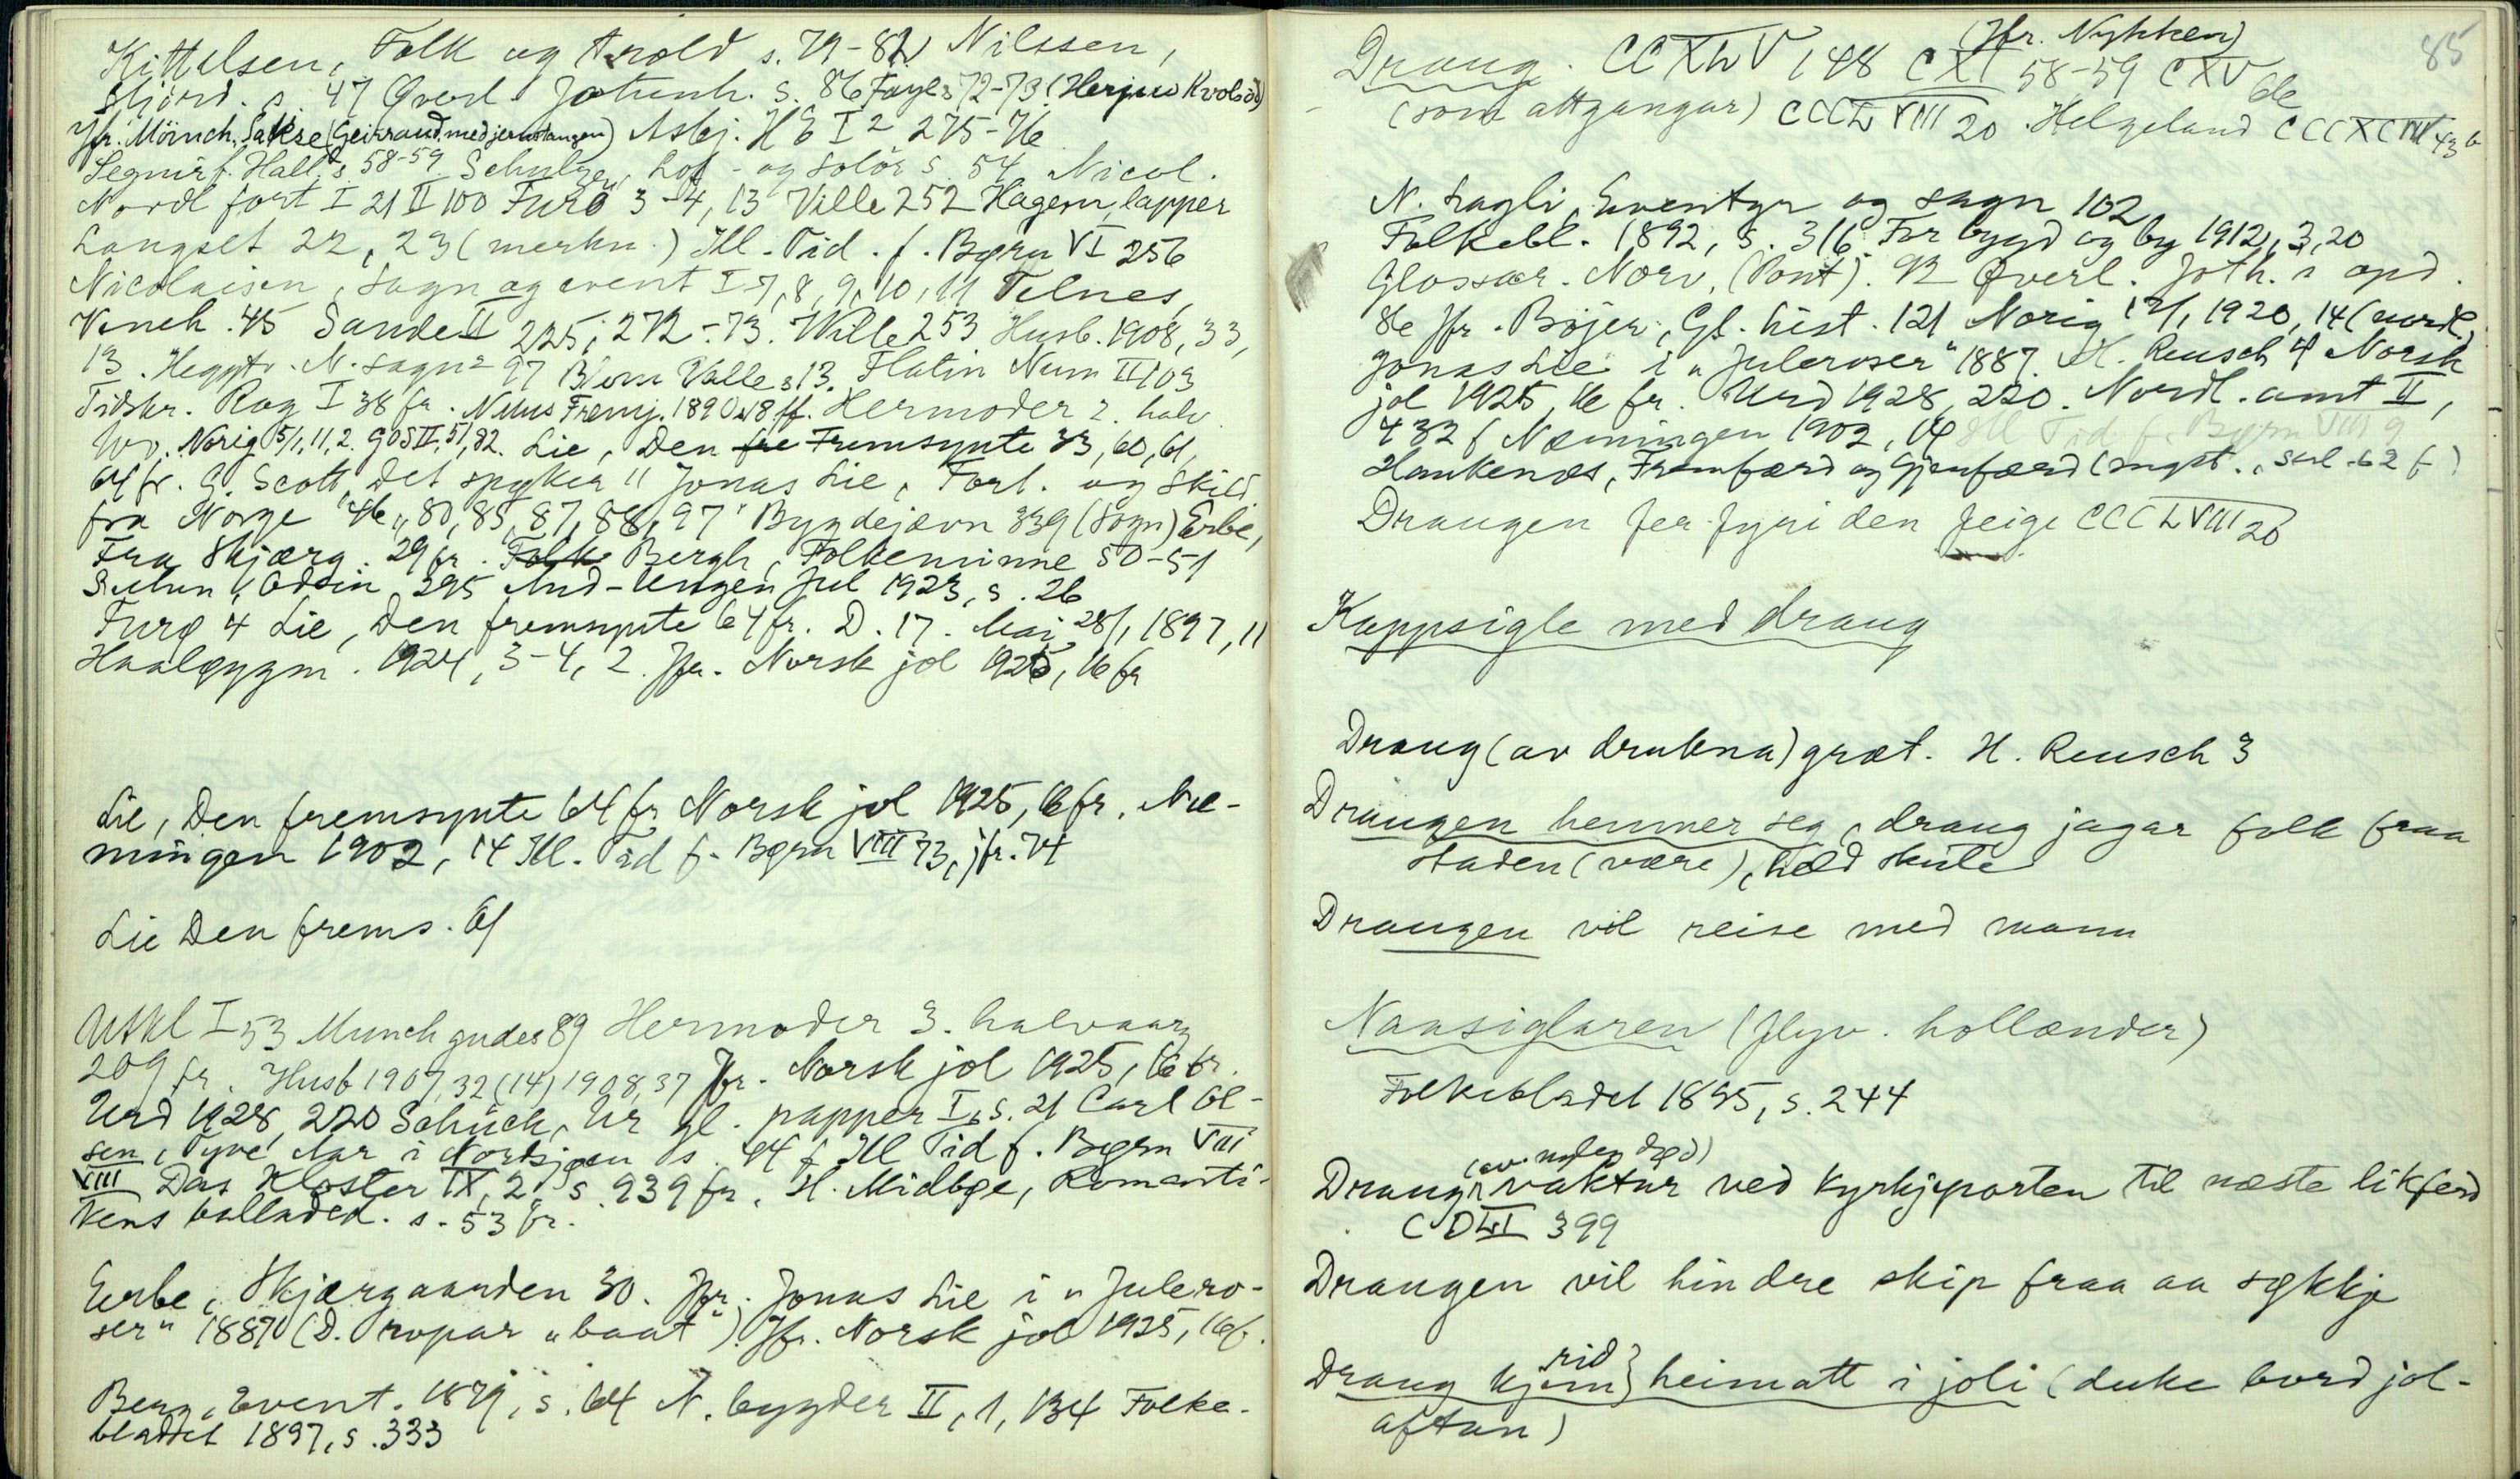 Kittelsen, Folk og trold s. 79-82 Nilssen,
s. 47 Øverl. Jotunh. s. 86 Faye s 72-73 (Herjus Kvolsöd)
Jfr. Möinch. Sakse (Geirraud med jernstangen) Asbj. HE I² 275-76
Segner f. Hall. s 58-59. Schulze, Lof- og Solör s. 54 Nicol.
Nordl fort I 21 II 100 Furö 3-4, 13 Ville 252 Hagem, lapper
Langset 22, 23 (merkn.) Ill. Tid. f. Børn VI 256
Nicolaisen, Sagn og event I 7, 8, 9, 10, 11 Telnes,
Vench. 45 Sande II 225, 272-73. Wille 253 Husb. 1908, 33,
13. Heggtv. N. sagn 97 Blom Valle s 13. Flatin Num II 103
Tidskr. Rog I 38 fr. Framj. 1890 s 18 ff. Hermoder 2. halv
Norig 5/1, 11, 2. GOS II, 51, 82. Lie, Den fre Fremsynte 33, 60, 61,
64 fr. G. Scott, Det spøker 11 Jonas Lie, Fort. og Skild
fra Norge 46, 80, 85, 87, 88, 97 Bygdejævn 339 (Sogn) Erbe,
Fra Skjærg. 29 fr. Folke Bergh, Folkeminne 50-51
Odsin 295 And-Ungen Jul 1923, s. 26
Furø 4 Lie, Den fremsynte 64 fr. D. 17. Mai 28/1 1897, 11
Haaløygm. 1924, 3-4, 2. Jfr. Norsk jol 1925, 16 fr
Lie, Den fremsynte 64 fr Norsk jol 1925, 16 fr. Næ-
mingen 1902, 14 Ill. Tid f. Børn VIII 73, jfr. 74
Lie Den frems. 61
Utkl I 53 Munch gudes 89 Hermoder 3. halvaarg
209 fr. Husb 1907, 32 (14) 1908, 37 Jfr. Norsk jol 1925, 16 fr.
Urd 1928, 220 Schück, Ur gl. papper I, s. 21 Carl Ol-
sen, Tyve Aar i Nordsjøen s. 94 f Ill Tid f. Børn VIII
VIII Das Kloster IX, 2, s. 939 fr. H. Midbøe, Romanti-
kens balladed. s. 53 fr.
Erbe, Skjærgaarden 30. Jfr. Jonas Lie i "Julero-
ser" 1887 (D. ropar "baat"). Jfr. Norsk jol 1925, 16 fr.
Berg, Event. 1879, s. 64 N. bygder II, 1, 134 Folke-
bladet 1897, s. 333
85
(Jfr. Nykken)
Draug. CCXLV 148 CXI 58-59 CXV 6e
(som attgangar) CCCLVIII 20 Helgeland CCCXCVII 43 b
N. Lagli, Eventyr og sagn 102
Folkebl. 1892, s. 316 For bygd og by 1912, 3, 20
Glossar. Norv. (Pont). 92 Øverl. Joth. s
86 Jfr. Böjer, Gl. hist. 121 Norig 1920, 14 (nordl.
Jonas Lie i "Juleroser" 1887. H. Reusch 4 Norsk
jol 1925, 16 fr. Urd 1928, 220. Nordl. amt II,
432 f Næmingen 1902, 14 Ill Tid f. Børn VIII 9
Haukenæs, Fremfærd og Gjenfærd
Draugen fer fyri den feige CCCLVIII 20
Kappsigle med draug
Draug (av drukna) græt. H. Reusch 3
Draugen hemner seg, draug jagar folk fraa
staden (være), held skute
Draugen vil reise med mann
Naasiglaren (flyv. hollænder)
Folkebladet 1895, s. 244
(av døgd)
Draugen vaktar ved kyrkjeporten til næste likferd
CDLI 399
Draugen vil hindre skip fraa aa søkkje
rid
Draug kjem} heimatt i joli (duke bord jol-
aftan)